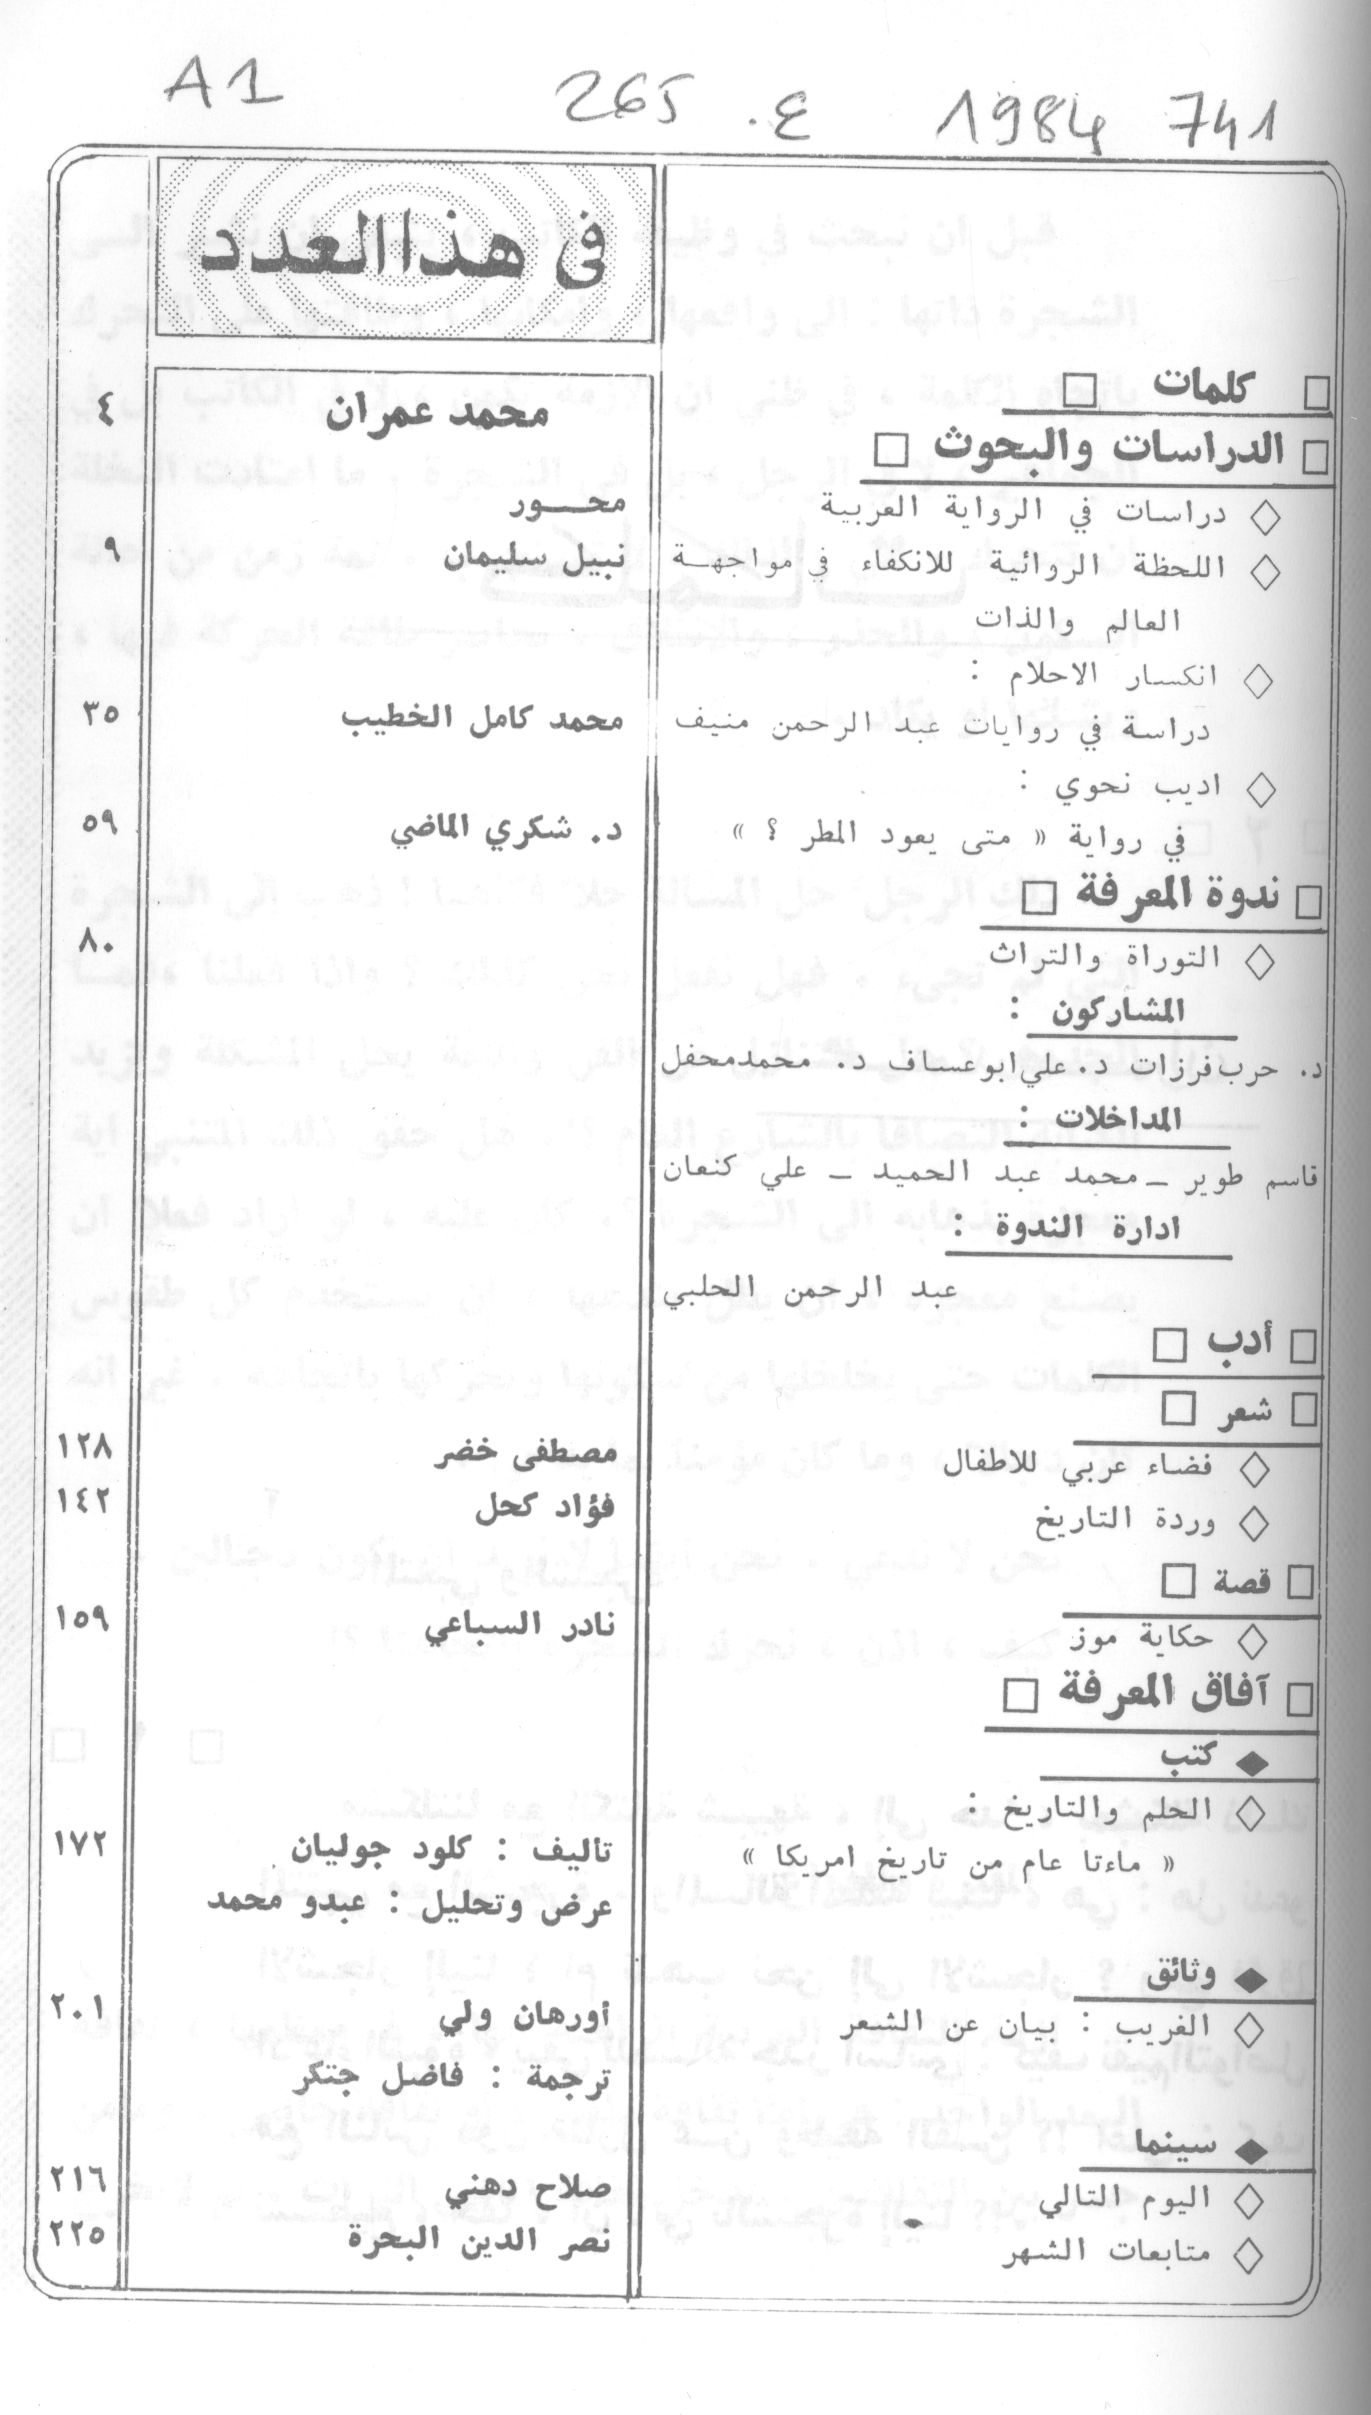 A1 265 ع. 1984 741
في هذا العدد
□ كلمات □ محمد عمران ٤
□ الدراسات والبحوث □
◇ دراسات في الرواية العربية محـــور
◇ اللحظة الروائية للانكفاء في مواجهـة نبيل سليمان ٩
العالم والذات
◇ انكسار الاحلام :
دراسة في روايات عبد الرحمن منيف محمد كامل الخطيب ٣٥
◇ اديب نحوي :
في رواية « متى يعود المطر ؟ » د. شكري الماضي ٥٩
□ ندوة المعرفة □
◇ التوراة والتراث ٨٠
المشاركون :
د. حرب فرزات د. علي ابو عساف د. محمد محفل
المداخلات :
قاسم طوير – محمد عبد الحميد – علي كنعان
ادارة الندوة :
عبد الرحمن الحلبي
□ أدب □
□ شعر □
◇ فضاء عربي للاطفال مصطفى خضر ١٢٨
◇ وردة التاريخ فؤاد كحل ١٤٢
□ قصة □
◇ حكاية موز نادر السباعي ١٥٩
□ آفاق المعرفة □
◆ كتب
◇ الحلم والتاريخ :
« ماءتا عام من تاريخ امريكا » تاليف : كلود جوليان ١٧٢
عرض وتحليل : عبدو محمد
◆ وثائق
◇ الغريب : بيان عن الشعر أورهان ولي ٢٠١
ترجمة : فاضل جتكر
◆ سينما
◇ اليوم التالي صلاح دهني ٢١٦
◇ متابعات الشهر نصر الدين البحرة ٢٢٥